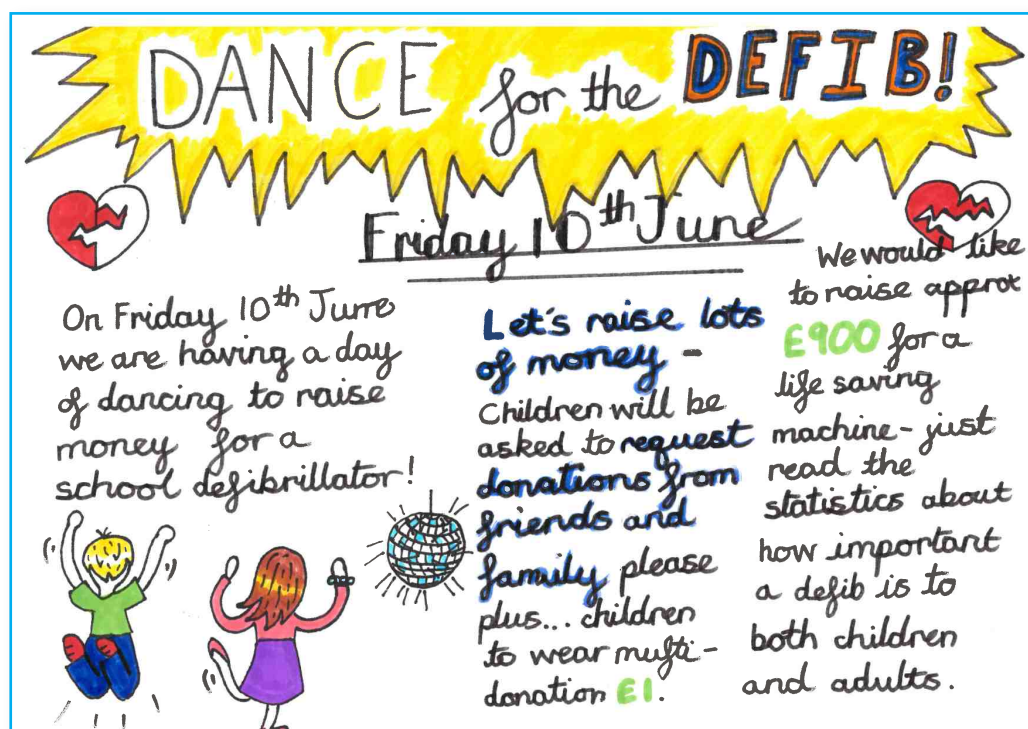 DANCE for the DEFIB!
Friday 10th June
On Friday 10th June
we are having a day
of dancing to raise
money for a
school defibrillator!
Let's raise lots
of money -
Children will be
asked to request
donations from
friends and
family please
plus... children
to wear mufti-
donation £1.
We would like
to raise approx
£900 for a
life saving
machine - just
read the
statistics about
how important
a defib is to
both children
and adults.